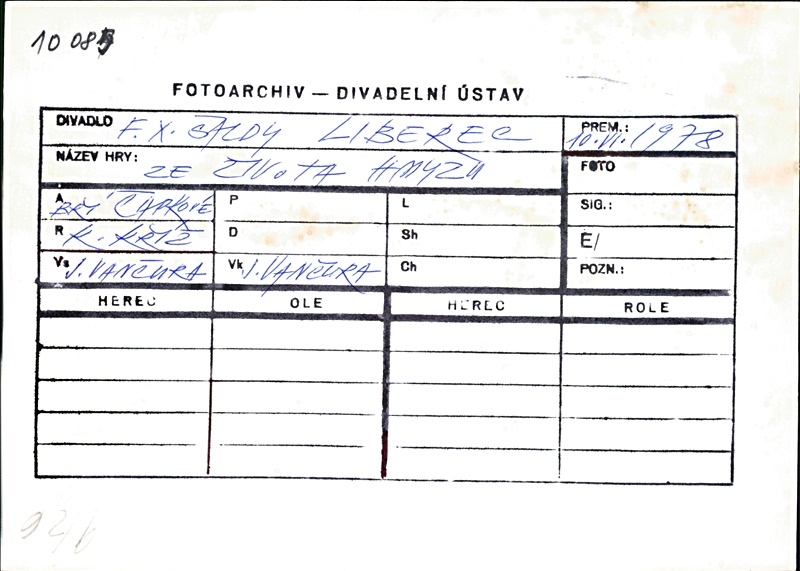 FOTOARCHIV — DIVADELNÍ ÚSTAV
DIVADLO F. X. ŠALDY LIBEREC
PREM.: 10. VI. 1978
NÁZEV HRY: ZE ŽIVOTA HMYZU
FOTO
A BŘÍ ČAPKOVÉ P L SIG.:
R K. KŘÍŽ D Sh Ē/
Vs J. VANČURA Vk J. VANČURA Ch POZN.:
HEREC OLE HEREC ROLE